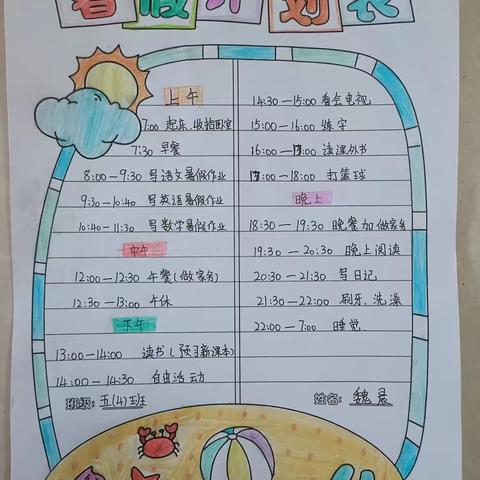 暑假计划表
上午
7:00 起床,收拾卧室
7:30 早餐
8:00—9:30 写语文暑假作业
9:30—10:40 写英语暑假作业
10:40—11:30 写数学暑假作业
中午
12:00—12:30 午餐(做家务)
12:30—13:00 午休
下午
13:00—14:00 读书(预习新课本)
14:00—14:30 自由活动
班级:五(4)班
14:30—15:00 看会电视
15:00—16:00 练字
16:00—17:00 读课外书
17:00—18:00 打篮球
晚上
18:30—19:30 晚餐加做家务
19:30—20:30 晚上阅读
20:30—21:30 写日记
21:30—22:00 刷牙,洗澡
22:00—7:00 睡觉
姓名:魏晨